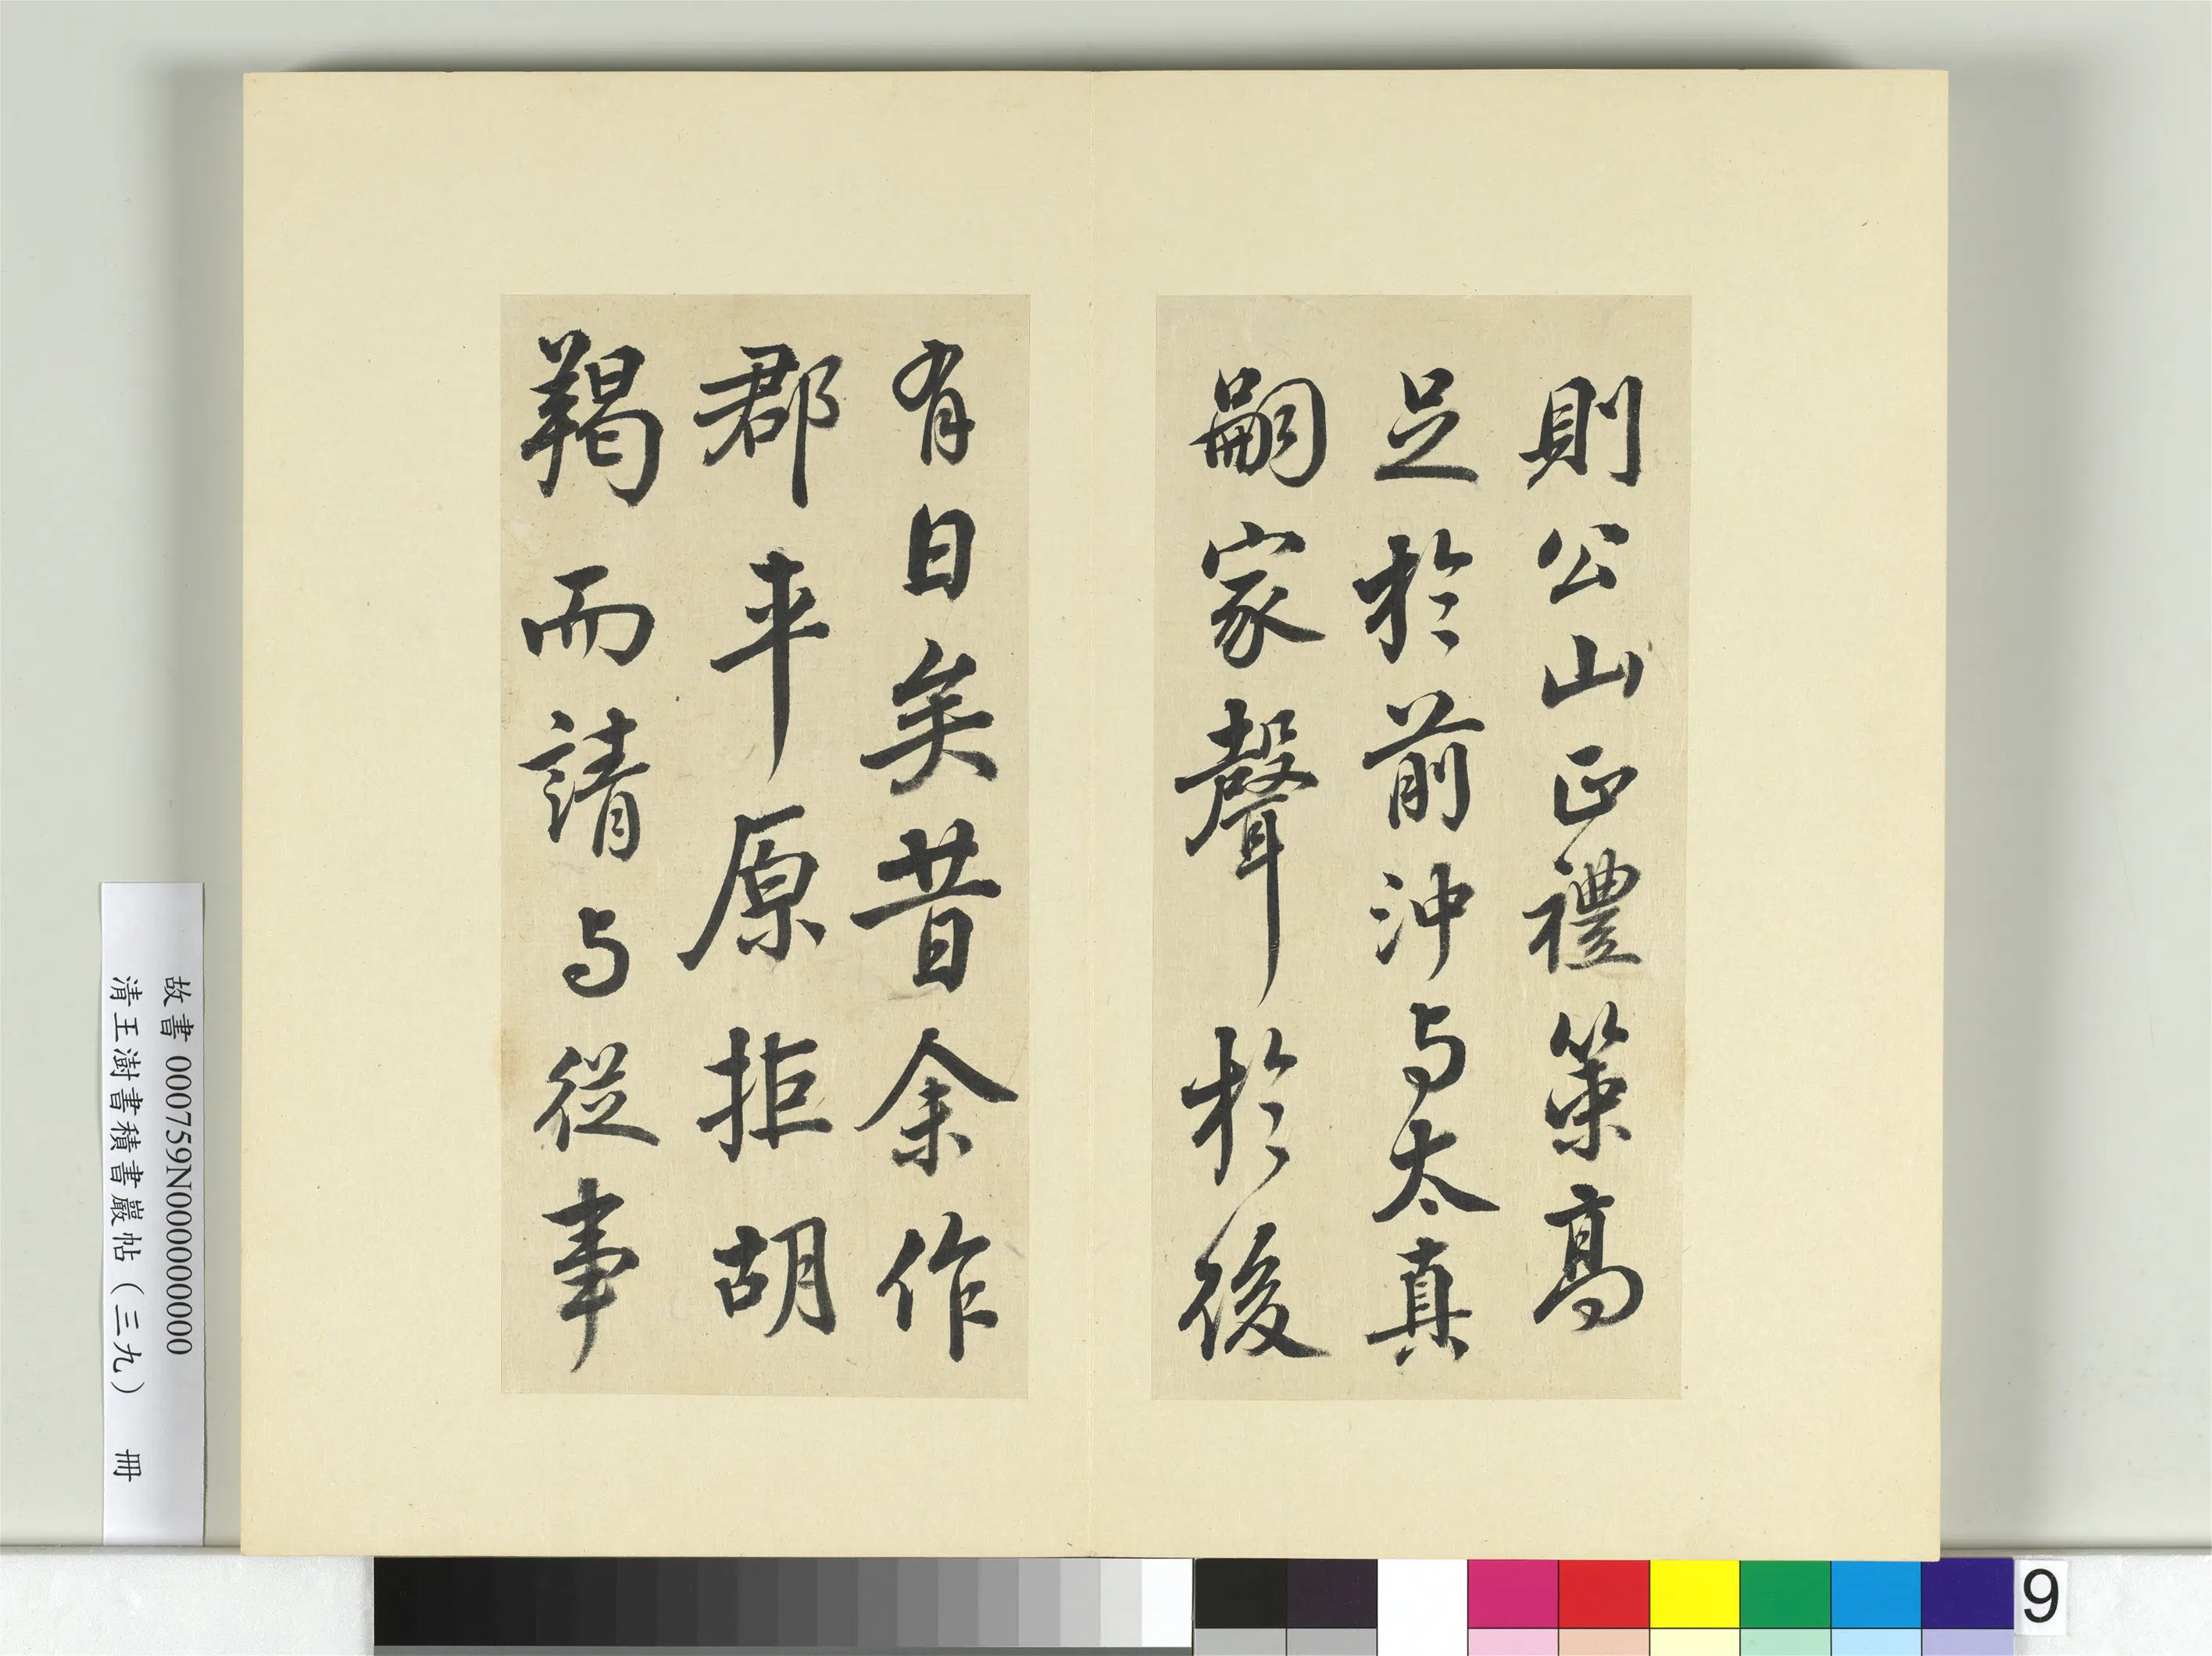 則公山正禮策高
足於前沖与太真
嗣家聲於後
有日矣昔余作
郡平原拒胡
羯而請与從事
故書 000759N000000000
清王澍書積書巖帖（三九） 冊
9